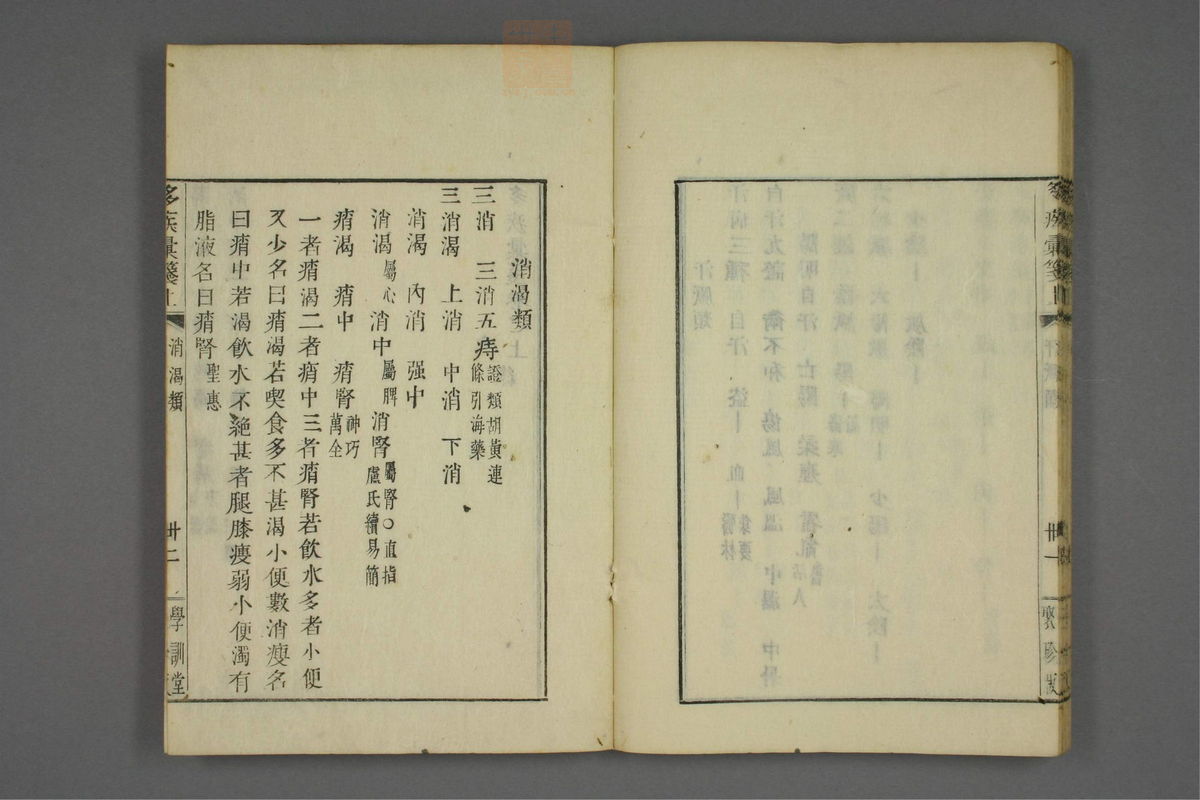 消渴類
三消　三消五痔證類胡黃連條引海藥
三消渴　上消　中消　下消
消渴　內消　强中
消渴屬心消中屬脾消腎屬腎○直指盧氏續易簡
痟渴　痟中　痟腎神巧萬全
一者痟渴二者痟中三者痟腎若飲水多者小便
又少名曰痟渴若喫食多不甚渴小便數消瘦名
曰痟中若渴飲水不絕甚者腿膝瘦弱小便濁有
脂液名曰痟腎聖惠
消渴類
卅二
學訓堂
卅一
聚珍版